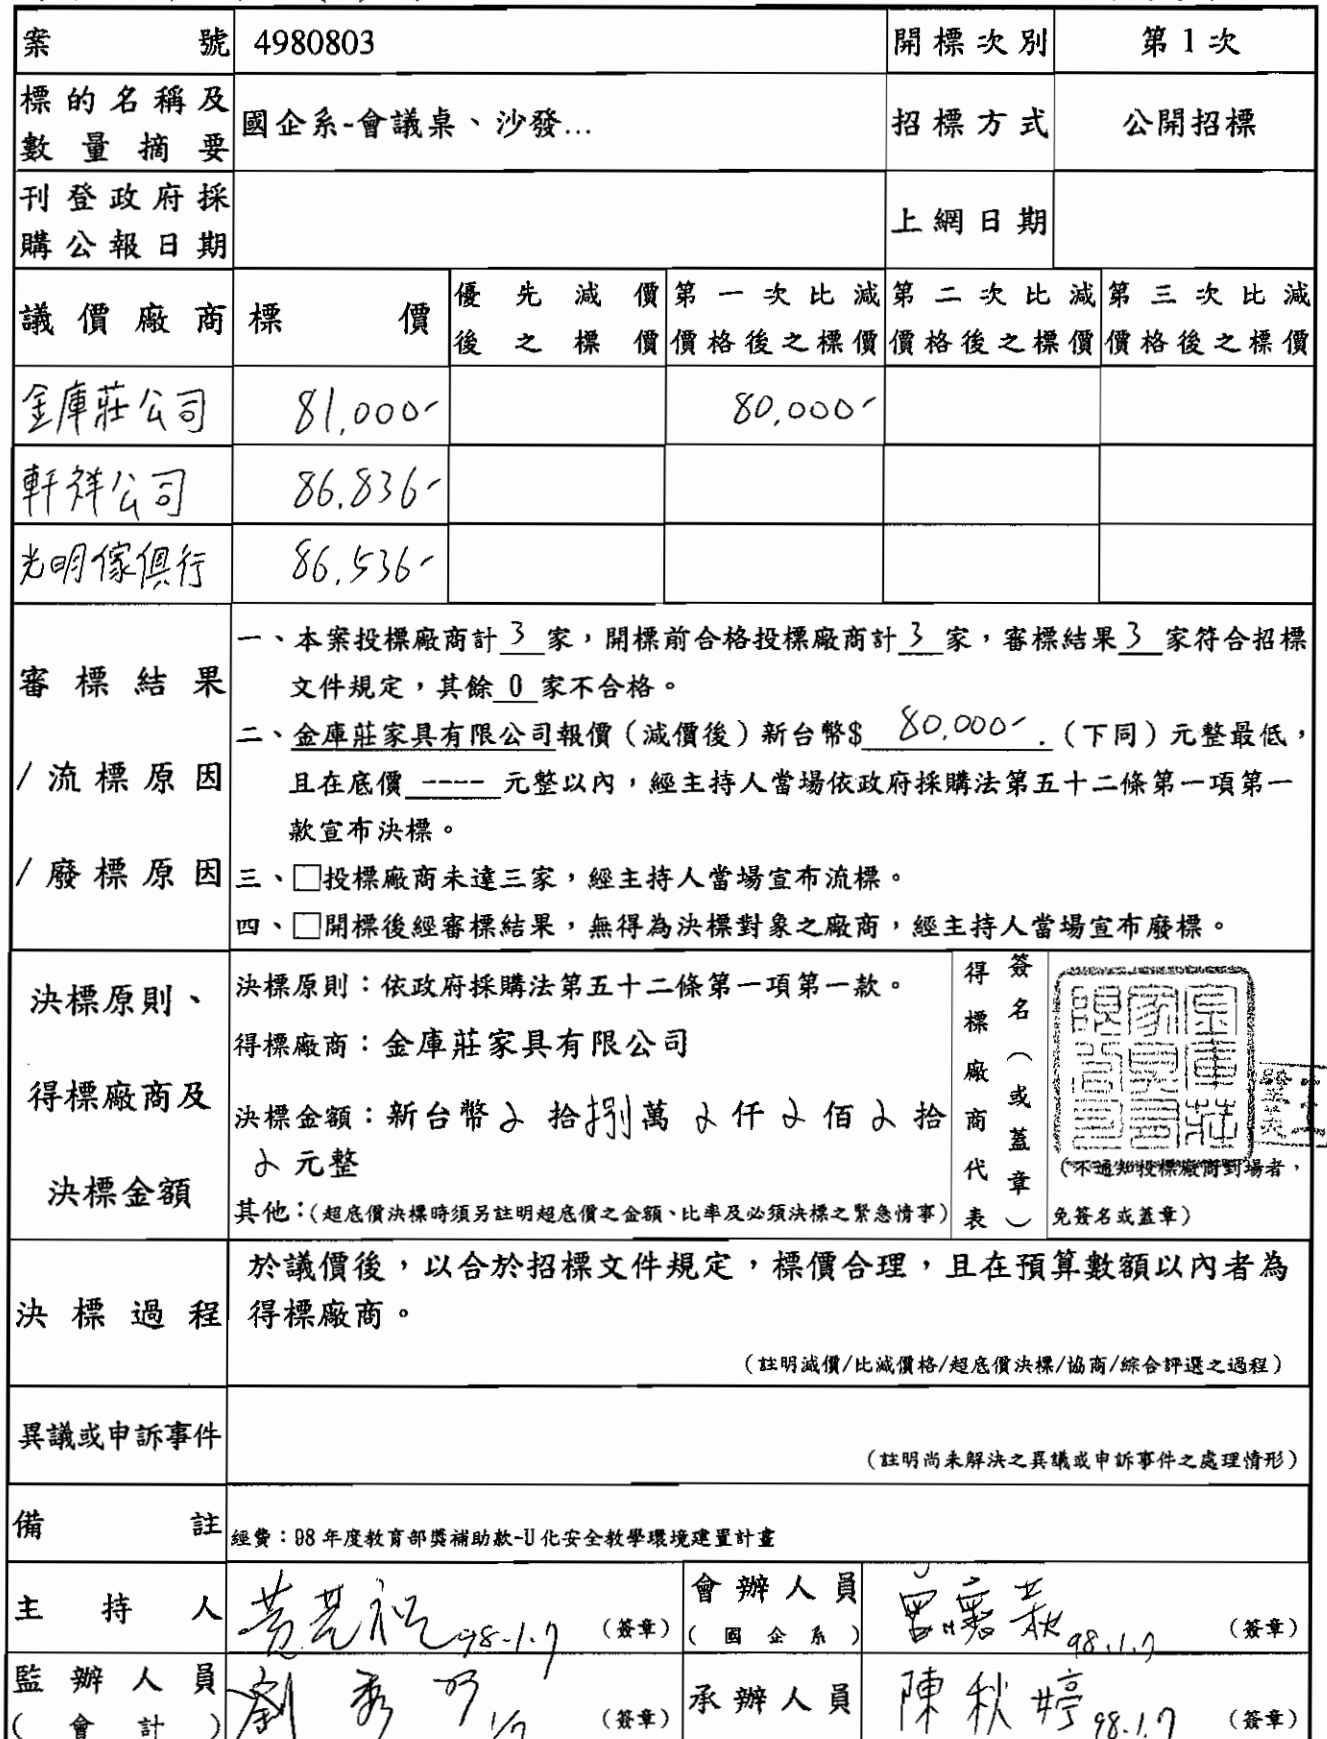 案號 4980803 開標次別 第1次
標的名稱及數量摘要 國企系-會議桌、沙發... 招標方式 公開招標
刊登政府採購公報日期 上網日期
議價廠商 標價 優先減價後之標價 第一次比減價格後之標價 第二次比減價格後之標價 第三次比減價格後之標價
金庫莊公司 81,000- 80,000-
軒祥公司 86,836-
光明傢俱行 86,536-
審標結果
/流標原因
/廢標原因
一、本案投標廠商計 3 家，開標前合格投標廠商計 3 家，審標結果 3 家符合招標
文件規定，其餘 0 家不合格。
二、金庫莊家具有限公司報價（減價後）新台幣$ 80,000- .（下同）元整最低，
且在底價 ---- 元整以內，經主持人當場依政府採購法第五十二條第一項第一
款宣布決標。
三、□投標廠商未達三家，經主持人當場宣布流標。
四、□開標後經審標結果，無得為決標對象之廠商，經主持人當場宣布廢標。
決標原則、
得標廠商及
決標金額
決標原則：依政府採購法第五十二條第一項第一款。
得標廠商：金庫莊家具有限公司
決標金額：新台幣 拾捌萬 仟 佰 拾
元整
其他：（超底價決標時須另註明超底價之金額、比率及必須決標之緊急情事）
得標廠商代表
簽名（或蓋章）
金庫莊
家具有
限公司
（不通知投標廠商到場者，
免簽名或蓋章）
決標過程
於議價後，以合於招標文件規定，標價合理，且在預算數額以內者為
得標廠商。
（註明減價/比減價格/超底價決標/協商/綜合評選之過程）
異議或申訴事件
（註明尚未解決之異議或申訴事件之處理情形）
備註 經費：98年度教育部獎補助款-U化安全教學環境建置計畫
主持人 98.1.7 （簽章） 會辦人員（國企系） 98.1.7 （簽章）
監辦人員（會計） 1/7 （簽章） 承辦人員 陳秋婷 98.1.7 （簽章）